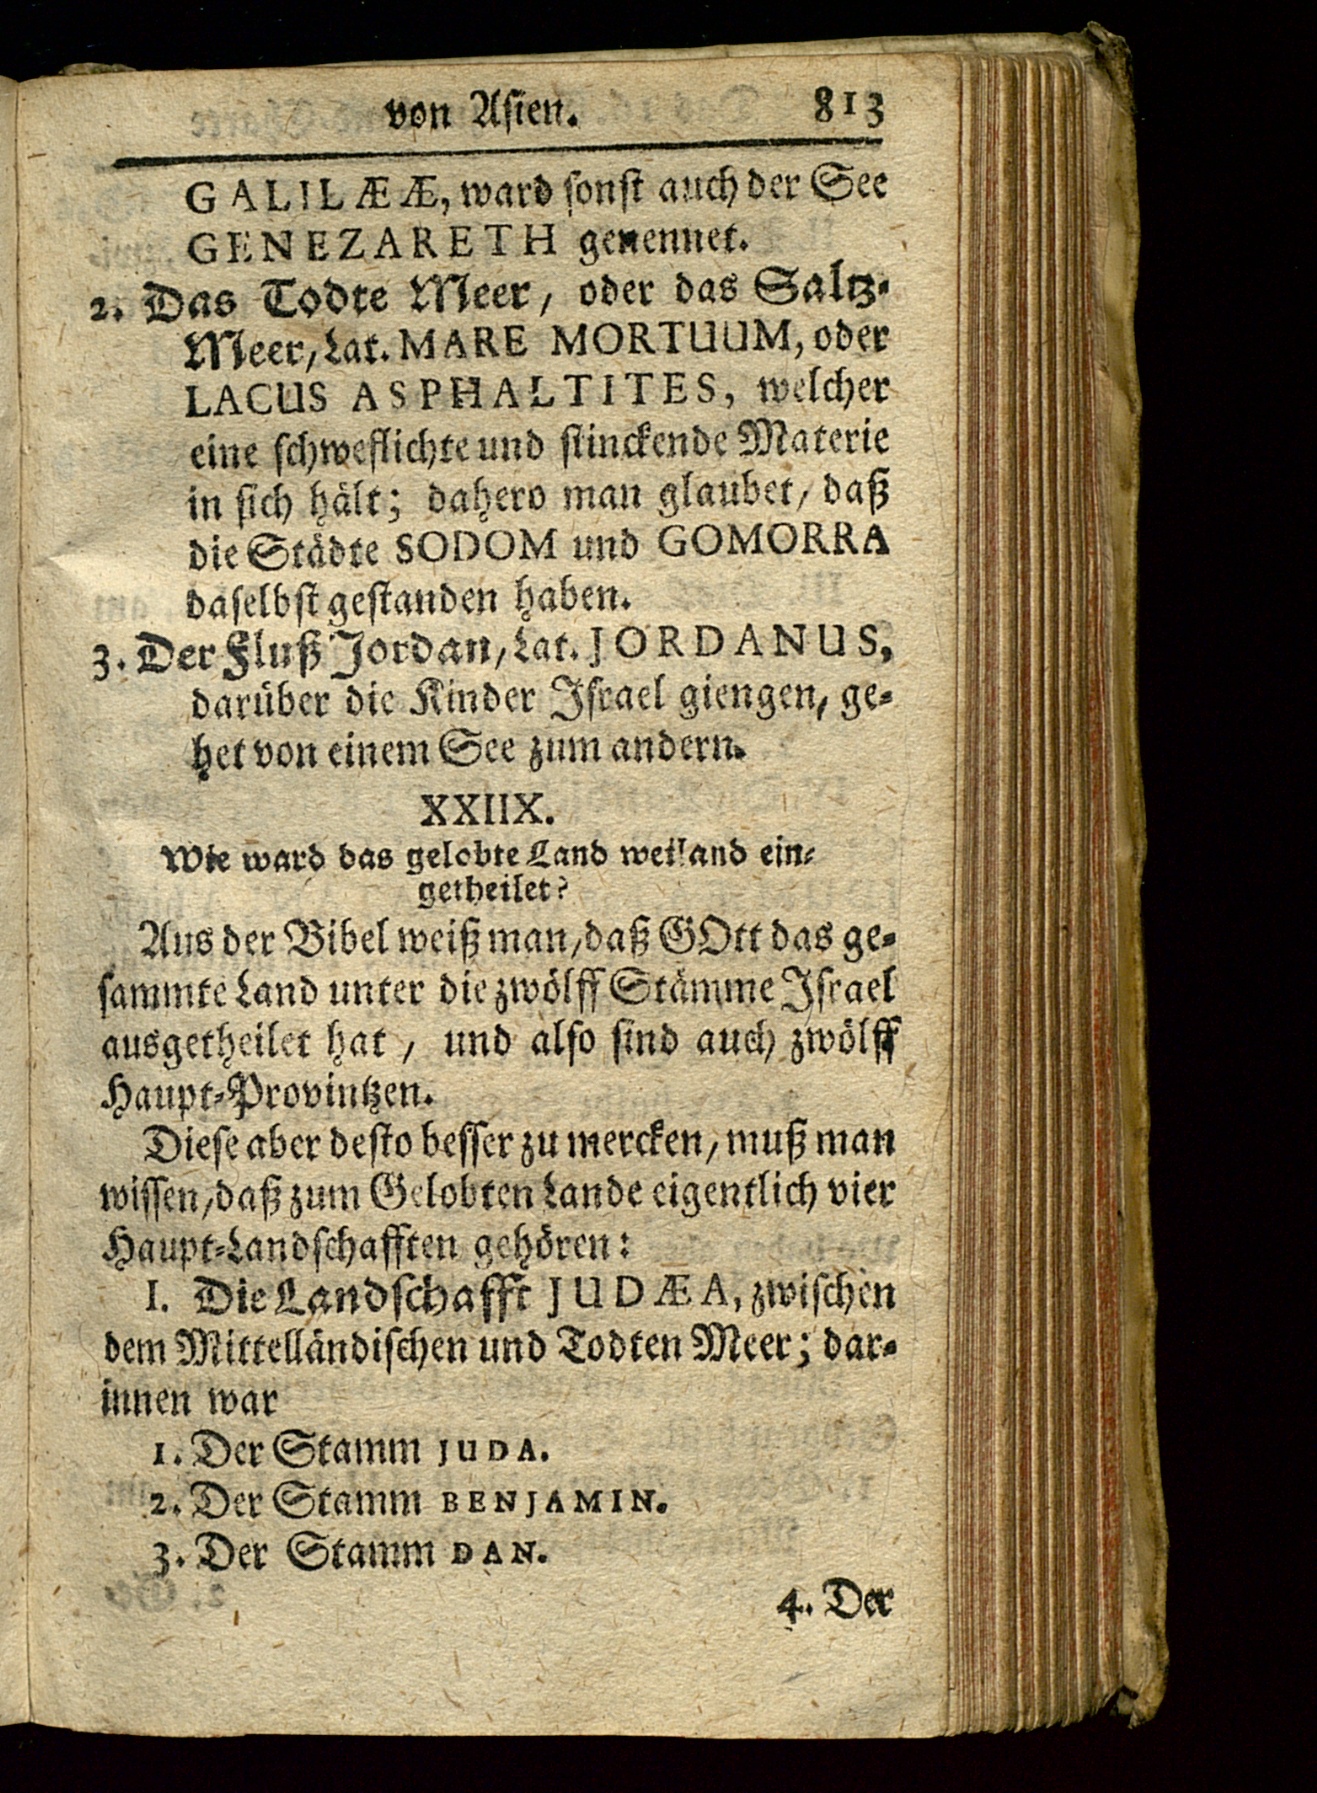 von Asien. 813
GALILÆÆ, ward sonst auch der See
GENEZARETH genennet.
2. Das Todte Meer, oder das Saltz-
Meer, Lat. MARE MORTUUM, oder
LACUS ASPHALTITES, welcher
eine schweflichte und stinckende Materie
in sich hält; dahero man glaubet, daß
die Städte SODOM und GOMORRA
daselbst gestanden haben.
3. Der Fluß Jordan, Lat. JORDANUS,
darüber die Kinder Israel giengen, ge-
het von einem See zum andern.
XXIIX.
Wie ward das gelobte Land weiland ein-
getheilet?
Aus der Bibel weiß man, daß GOtt das ge-
sammte Land unter die zwölff Stämme Israel
ausgetheilet hat, und also sind auch zwölff
Haupt-Provintzen.
Diese aber desto besser zu mercken, muß man
wissen, daß zum Gelobten Lande eigentlich vier
Haupt-Landschafften gehören:
I. Die Landschafft JUDÆA, zwischen
dem Mittelländischen und Todten Meer; dar-
innen war
1. Der Stamm JUDA.
2. Der Stamm BENJAMIN.
3. Der Stamm DAN.
4. Der